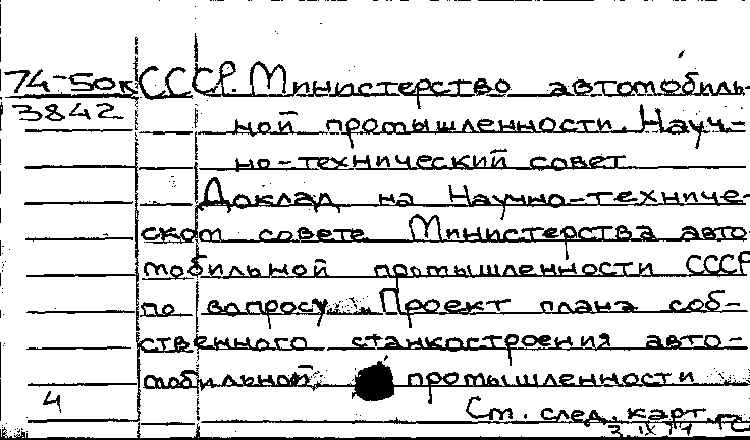 74-50к СССР. Министерство автомобиль-
3842 ной промышленности. Науч-
но-технический совет
Доклад на Научно-техниче-
ском совете Министерства авто-
мобильной промышленности СССР
по вопросу „Проект плана соб-
ственного станкостроения авто-
мобильной промышленности
4 См. след. карт.